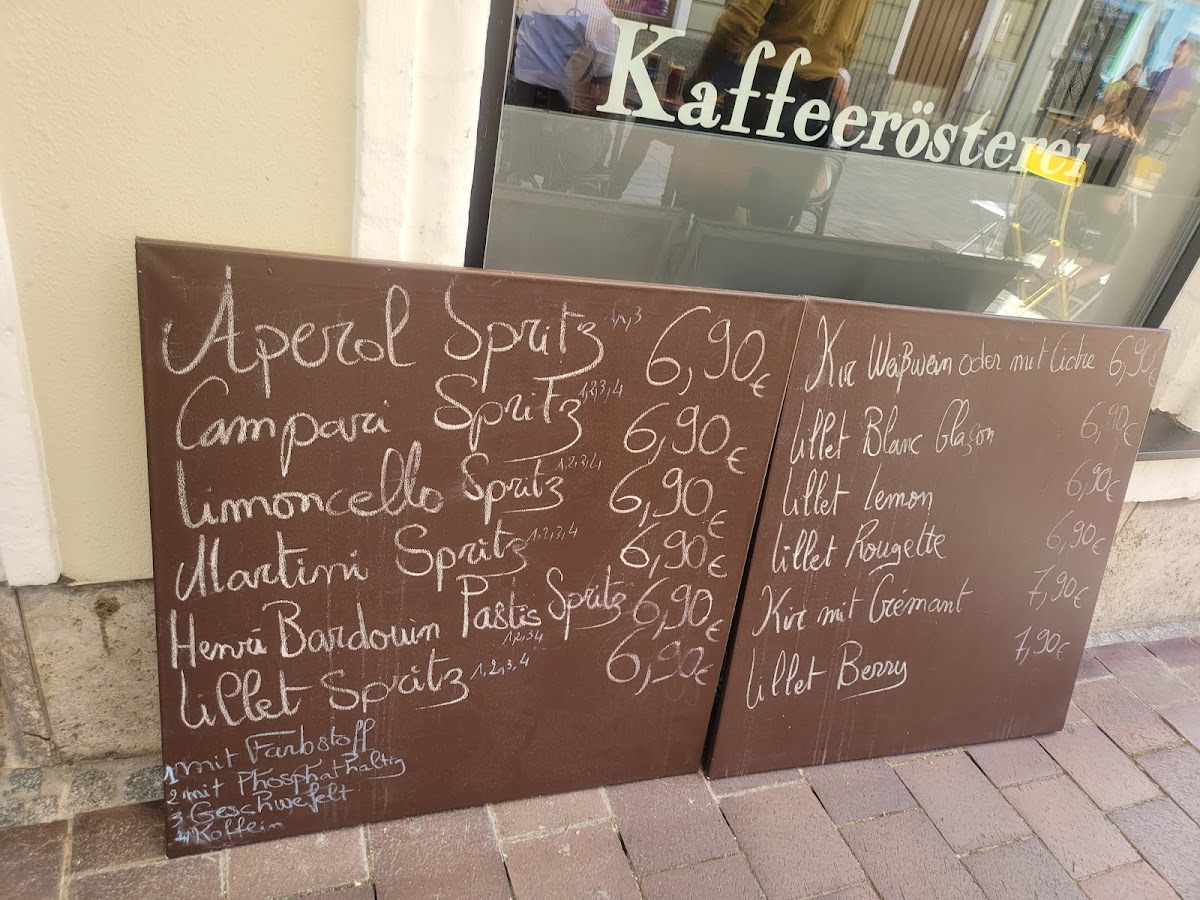 Kaffeerösterei
Aperol Spritz 1,2,3 6,90€
Campari Spritz 1,2,3,4 6,90€
Limoncello Spritz 1,2,3,4 6,90€
Martini Spritz 1,2,3,4 6,90€
Henri Bardouin Pastis Spritz 6,90€
1,2,3 4
Lillet Spritz 1,2,3,4 6,90€
1 mit Farbstoff
2 mit Phosphathaltig
3 Geschwefelt
4 Koffein
Kir Weißwein oder mit Cidre 6,90€
Lillet Blanc Glaçon 6,90€
Lillet Lemon 6,90€
Lillet Rougette 6,90€
Kir mit Crémant 7,90€
Lillet Berry 7,90€